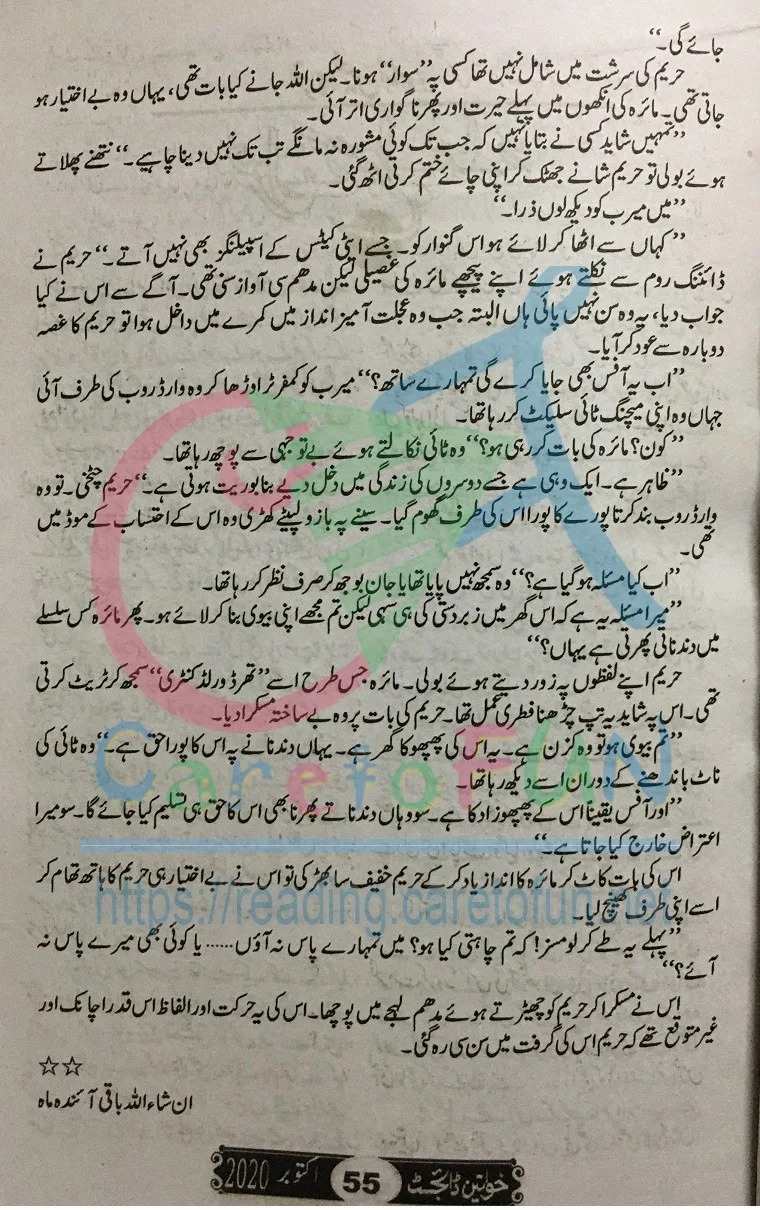 جائے گی۔‘‘
حریم کی سرشت میں شامل نہیں تھا کسی پہ ’’سوار‘‘ ہونا۔ لیکن اللہ جانے کیا بات تھی، یہاں وہ بے اختیار ہو
جاتی تھی۔ مائرہ کی آنکھوں میں پہلے حیرت اور پھر ناگواری اتر آئی۔
’’تمہیں شاید کسی نے بتایا نہیں کہ جب تک کوئی مشورہ نہ مانگے تب تک نہیں دینا چاہیے۔‘‘ نتھنے پھلاتے
ہوئے بولی تو حریم شانے جھٹک کر اپنی چائے ختم کرتی اٹھ گئی۔
’’میں میرب کو دیکھ لوں ذرا۔‘‘
’’کہاں سے اٹھا کر لائے ہو اس گنوار کو۔ جسے ایٹی کیٹس کے اسپیلنگز بھی نہیں آتے۔‘‘ حریم نے
ڈائننگ روم سے نکلتے ہوئے اپنے پیچھے مائرہ کی غصیلی لیکن مدھم سی آواز سنی تھی۔ آگے سے اس نے کیا
جواب دیا، یہ وہ سن نہیں پائی ہاں البتہ جب وہ عجلت آمیز انداز میں کمرے میں داخل ہوا تو حریم کا غصہ
دوبارہ سے عود کر آیا۔
’’اب یہ آفس بھی جایا کرے گی تمہارے ساتھ؟‘‘ میرب کو کمفرٹر اوڑھا کر وہ وارڈ روب کی طرف آئی
جہاں وہ اپنی میچنگ ٹائی سلیکٹ کر رہا تھا۔
’’کون؟ مائرہ کی بات کر رہی ہو؟‘‘ وہ ٹائی نکالتے ہوئے بے توجہی سے پوچھ رہا تھا۔
’’ظاہر ہے۔ ایک وہی ہے جسے دوسروں کی زندگی میں دخل دیے بنا بوریت ہوتی ہے۔‘‘ حریم چٹخی۔ تو وہ
وارڈ روب بند کرتا پورے کا پورا اس کی طرف گھوم گیا۔ سینے پہ بازو لپیٹے کھڑی وہ اس کے احتساب کے موڈ میں
تھی۔
’’اب کیا مسئلہ ہو گیا ہے؟‘‘ وہ سمجھ نہیں پایا تھا یا جان بوجھ کر صرف نظر کر رہا تھا۔
’’میرا مسئلہ یہ ہے کہ اس گھر میں زبردستی کی ہی سہی لیکن تم مجھے اپنی بیوی بنا کر لائے ہو۔ پھر مائرہ کس سلسلے
میں دندناتی پھرتی ہے یہاں؟‘‘
حریم اپنے لفظوں پہ زور دیتے ہوئے بولی۔ مائرہ جس طرح اسے ’’تھرڈ ورلڈ کنٹری‘‘ سمجھ کر ٹریٹ کرتی
تھی۔ اس پہ شاید یہ تپ چڑھنا فطری عمل تھا۔ حریم کی بات پر وہ بے ساختہ مسکرا دیا۔
’’تم بیوی ہو تو وہ کزن ہے۔ یہ اس کی پھپھو کا گھر ہے۔ یہاں دندنانے پہ اس کا پورا حق ہے۔‘‘ وہ ٹائی کی
ناٹ باندھنے کے دوران اسے دیکھ رہا تھا۔
’’اور آفس یقیناً اس کے پھپھوزاد کا ہے۔ سو وہاں دندناتے پھرنا بھی اس کا حق ہی تسلیم کیا جائے گا۔ سو میرا
اعتراض خارج کیا جاتا ہے۔‘‘
اس کی بات کاٹ کر مائرہ کا انداز یاد کر کے حریم خفیف سا بھڑکی تو اس نے بے اختیار ہی حریم کا ہاتھ تھام کر
اسے اپنی طرف کھینچ لیا۔
’’پہلے یہ طے کر لو مسز! کہ تم چاہتی کیا ہو؟ میں تمہارے پاس نہ آؤں...... یا کوئی بھی میرے پاس نہ
آئے؟‘‘
اس نے مسکرا کر حریم کو چھیڑتے ہوئے مدھم لہجے میں پوچھا۔ اس کی یہ حرکت اور الفاظ اس قدر اچانک اور
غیر متوقع تھے کہ حریم اس کی گرفت میں سن سی رہ گئی۔
☆☆
ان شاء اللہ باقی آئندہ ماہ
خواتین ڈائجسٹ 55 اکتوبر 2020
CaretoFUN
https://reading.caretofun.net